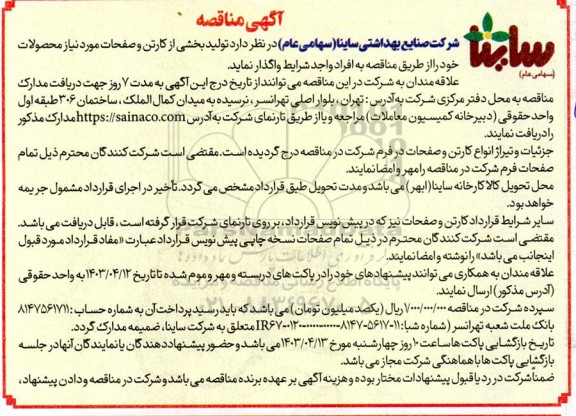 آگهی مناقصه
ساینا
(سهامی عام)
شرکت صنایع بهداشتی ساینا (سهامی عام) در نظر دارد تولید بخشی از کارتن و صفحات مورد نیاز محصولات
خود را از طریق مناقصه به افراد واجد شرایط واگذار نماید.
علاقه مندان به شرکت در این مناقصه می توانند از تاریخ درج این آگهی به مدت ۷ روز جهت دریافت مدارک
مناقصه به محل دفتر مرکزی شرکت به آدرس: تهران، بلوار اصلی تهرانسر، نرسیده به میدان کمال الملک، ساختمان ۳۰۶ طبقه اول
واحد حقوقی (دبیرخانه کمیسیون معاملات) مراجعه و یا از طریق تارنمای شرکت به آدرس https://sainaco.com مدارک مذکور
را دریافت نمایند.
جزئیات و تیراژ انواع کارتن و صفحات در فرم شرکت در مناقصه درج گردیده است. مقتضی است شرکت کنندگان محترم ذیل تمام
صفحات فرم شرکت در مناقصه را مهر و امضا نمایند.
محل تحویل کالا کارخانه ساینا (ابهر) می باشد و مدت تحویل طبق قرارداد مشخص می گردد. تأخیر در اجرای قرارداد مشمول جریمه
خواهد بود.
سایر شرایط قرارداد کارتن و صفحات نیز که در پیش نویس قرارداد، بر روی تارنمای شرکت قرار گرفته است، قابل دریافت می باشد.
مقتضی است شرکت کنندگان محترم در ذیل تمام صفحات نسخه چاپی پیش نویس قرارداد عبارت «مفاد قرارداد مورد قبول
اینجانب می باشد» را نوشته و امضا نمایند.
علاقه مندان به همکاری می توانند پیشنهادهای خود را در پاکت های دربسته و مهر و موم شده تا تاریخ ۱۴۰۳/۰۴/۱۲ به واحد حقوقی
(آدرس مذکور) ارسال نمایند.
سپرده شرکت در مناقصه ۱/۰۰۰/۰۰۰/۰۰۰ ریال (یکصد میلیون تومان) می باشد که باید رسید پرداخت آن به شماره حساب: ۸۱۴۷۵۶۱۷۱۱
بانک ملت شعبه تهرانسر متعلق به شرکت ساینا، ضمیمه مدارک گردد.
تاریخ بازگشایی پاکت ها ساعت ۱۰ روز چهارشنبه مورخ ۱۴۰۳/۰۴/۱۳ می باشد و حضور پیشنهاد دهندگان یا نمایندگان آنها در جلسه
بازگشایی پاکت ها با هماهنگی شرکت مجاز می باشد.
ضمناً شرکت در رد یا قبول پیشنهادات مختار بوده و هزینه آگهی بر عهده برنده مناقصه می باشد و شرکت در مناقصه و دادن پیشنهاد،